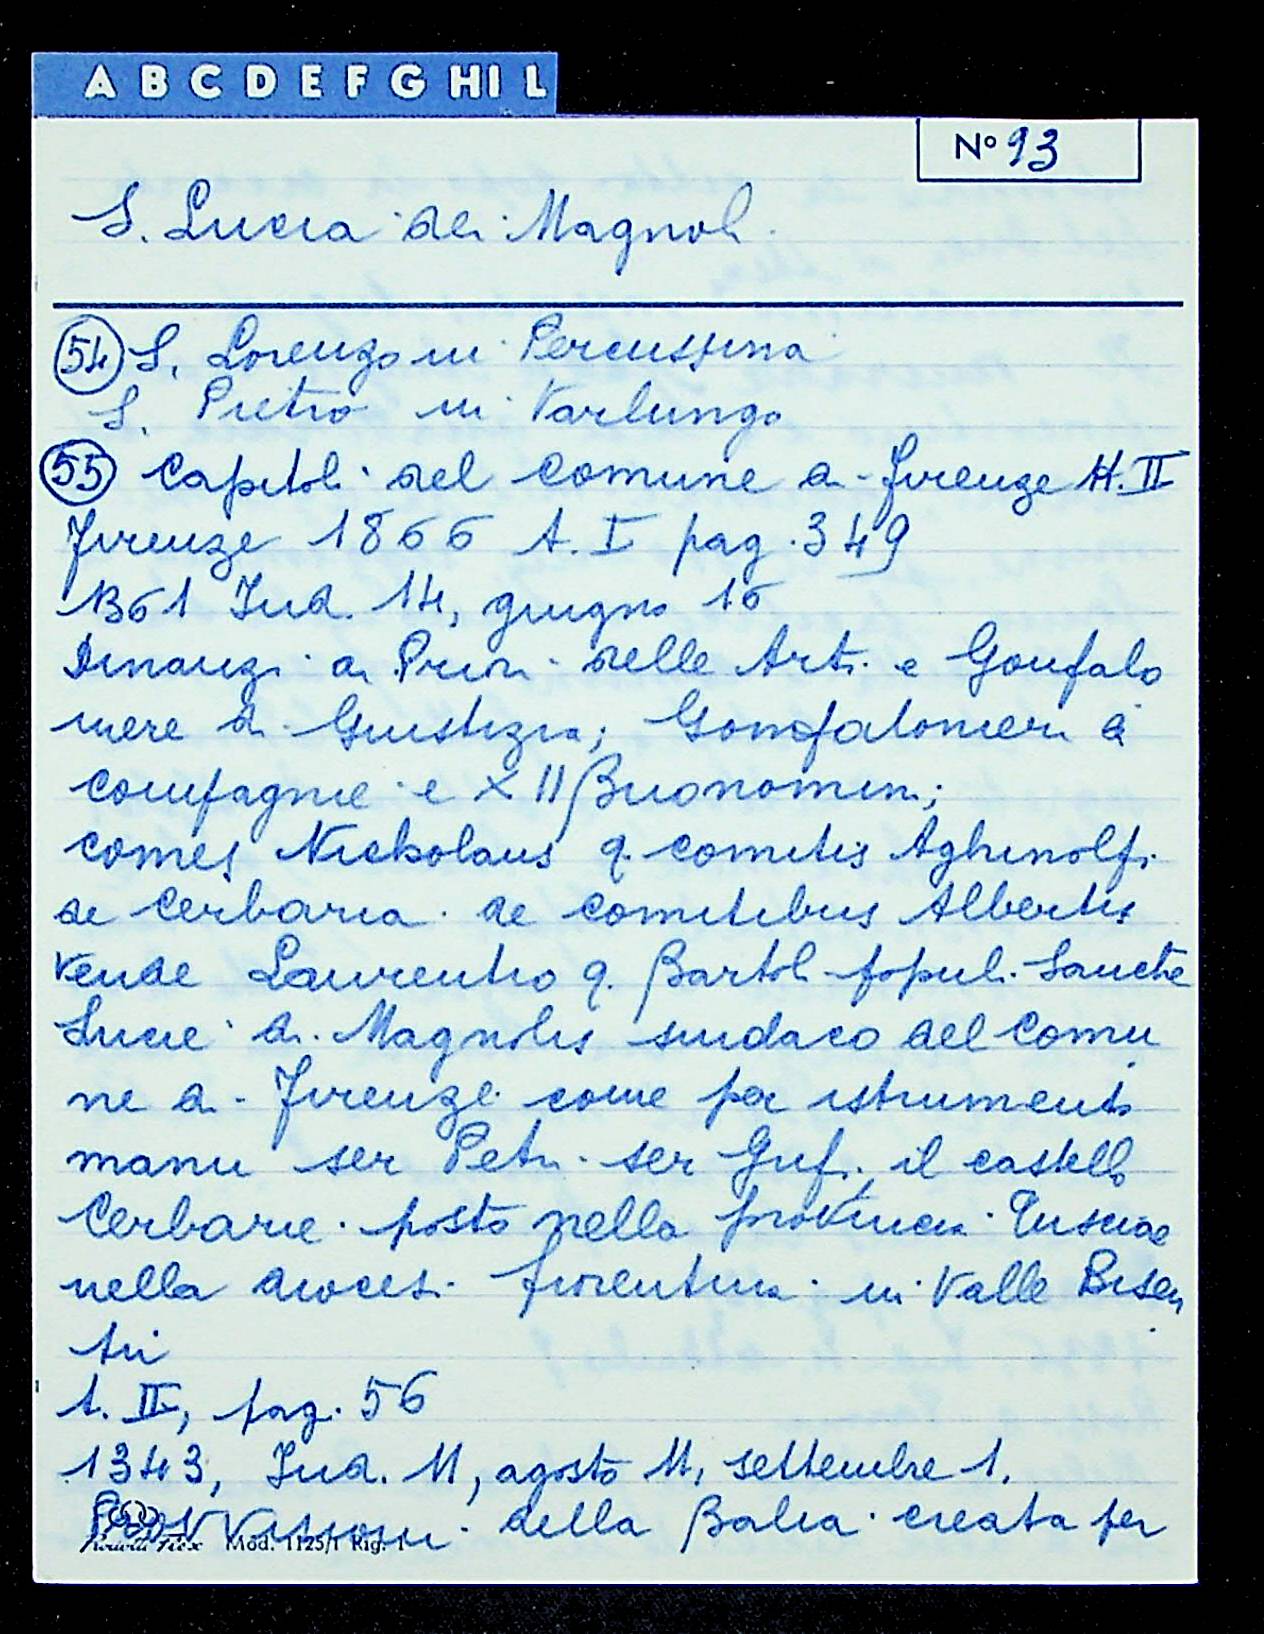 A B C D E F G HI L
N° 93
S. Lucia dei Magnoli
54 S. Lorenzo in Percussina
S. Pietro in Varlungo
55 Capitoli del Comune di Firenze t. II
Firenze 1866 t. I pag. 349
1361 Ind. 14, giugno 16
Dinanzi ai Priori delle Arti e Gonfalo
niere di Giustizia; Gonfalonieri di
compagnie e XII Buonomini;
comes Nickolaus q. comitis Aghinolfi
de Cerbaria de comitibus Albertis
vende Laurentio q. Bartoli populi Sancte
Lucie di Magnolis sindaco del Comu
ne di Firenze come per istrumento
manu ser Petri ser Grifi, il castello
Cerbarie posto nella provincia Tusciae
nella diocesi fiorentina in Valle Bisen
tii
t. II, pag. 56
1343, Ind. 11, agosto 11, settembre 1.
della Balia creata per
Mod. 1125/1 Rig. 1